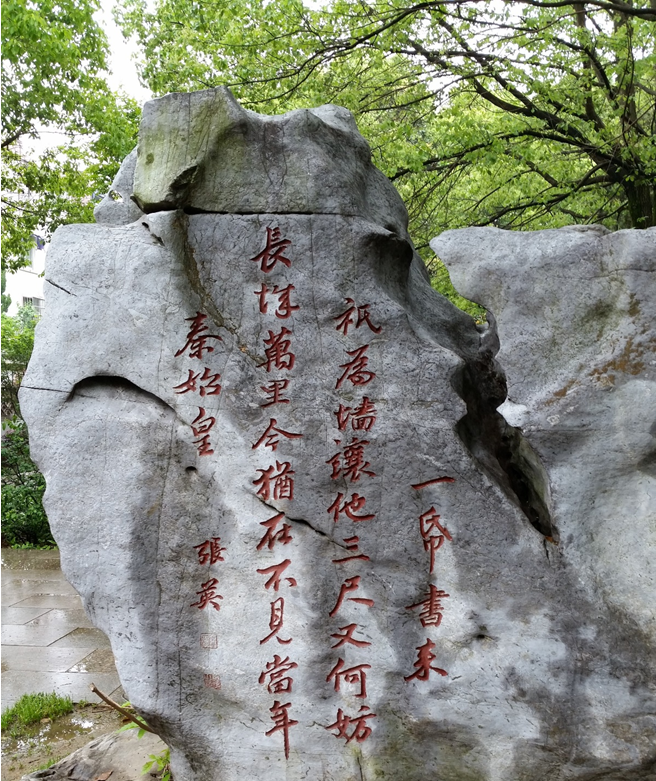 一帋書来
祇為墙讓他三尺又何妨
長城萬里今猶在不見當年
秦始皇
張英